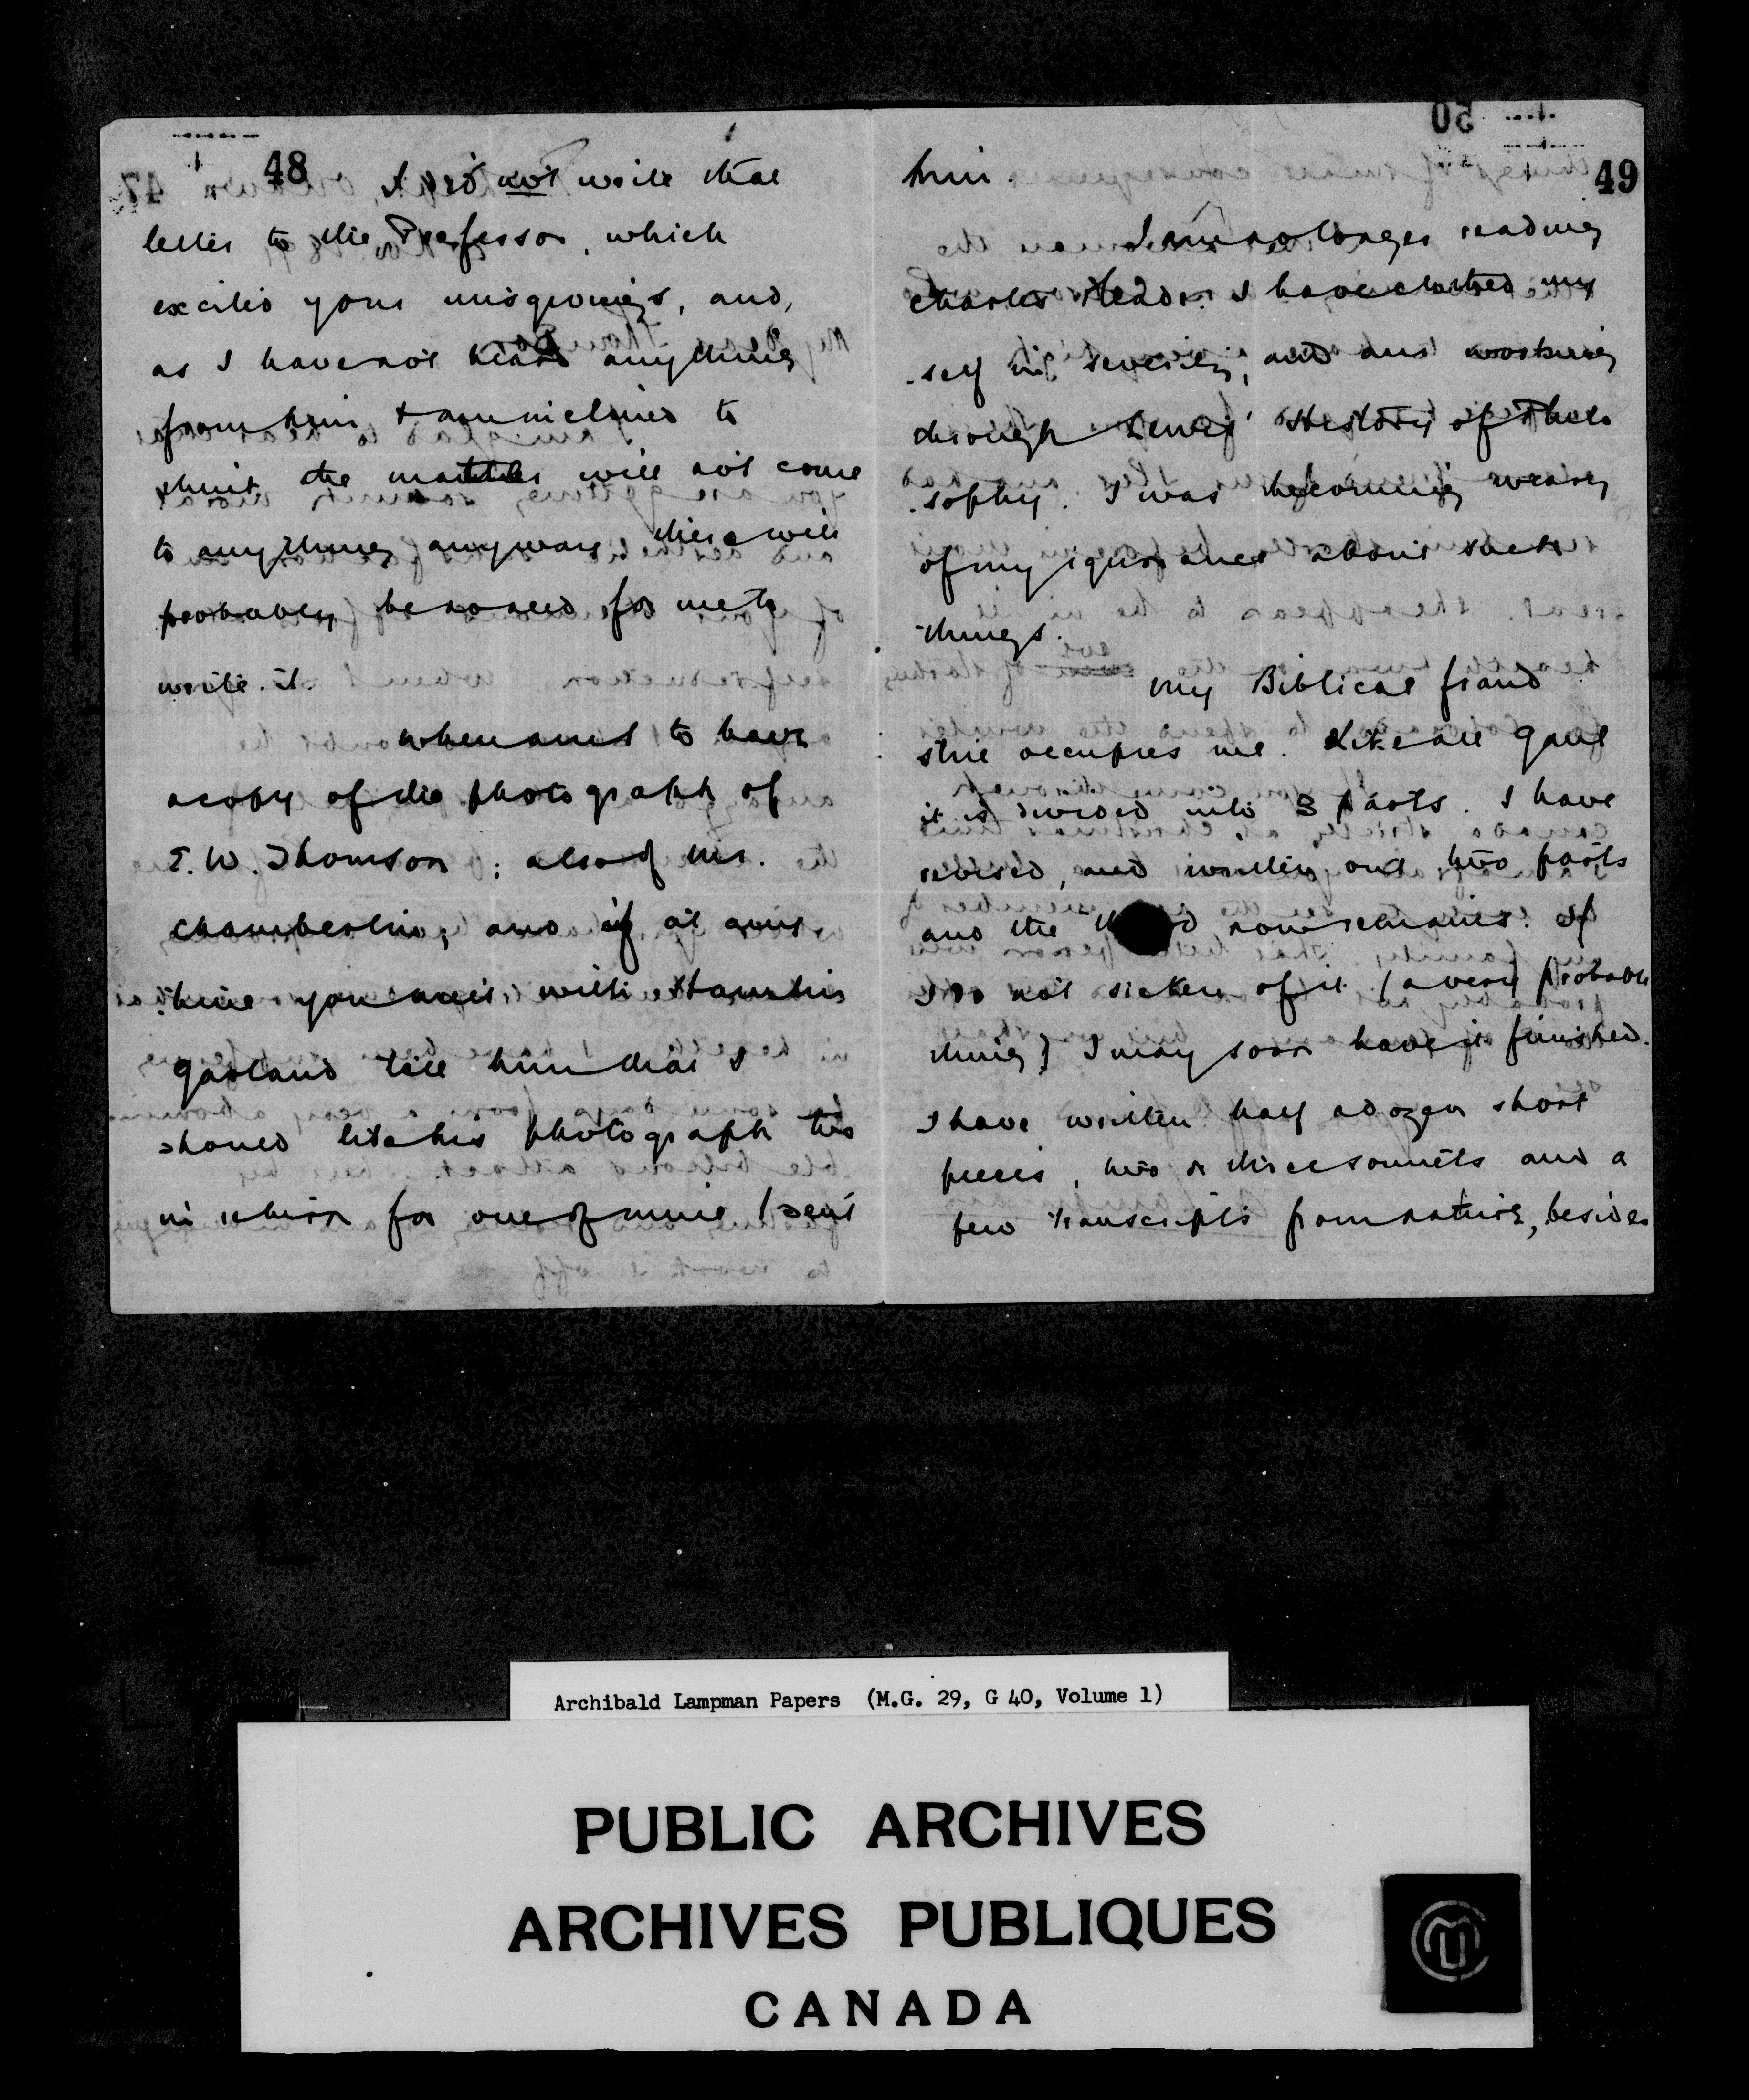 48
I did not write that
letter to the Professor, which
excited your misgivings, and,
as I have not heard anything
from him & am inclined to
think the matter will not come
to anything anyway there will
probably be no need for me to
write it.
When am I to have
a copy of the photograph of
E. W. Thomson; also of Mr.
Chamberlin; and if at any
time you meet with Hamlin
Garland tell him that I
should like his photograph too
in return for one of mine I sent
49
him.
I am no longer reading
Charles Reade. I have clothed my
-self in severity, and am working
through Lewes' History of Philo
-sophy. I was becoming weary
of my ignorance about such
things.
My Biblical fraud
still occupies me. Like all Gaul
it is divided into 3 parts. I have
revised, and written out two parts
and the third now remains. If
I do not sicken of it (a very probable
thing) I may soon have it finished.
I have written half a dozen short
pieces, two or three sonnets and a
few transcripts from nature, besides
Archibald Lampman Papers (M.G. 29, G 40, Volume 1)
PUBLIC ARCHIVES
ARCHIVES PUBLIQUES
CANADA